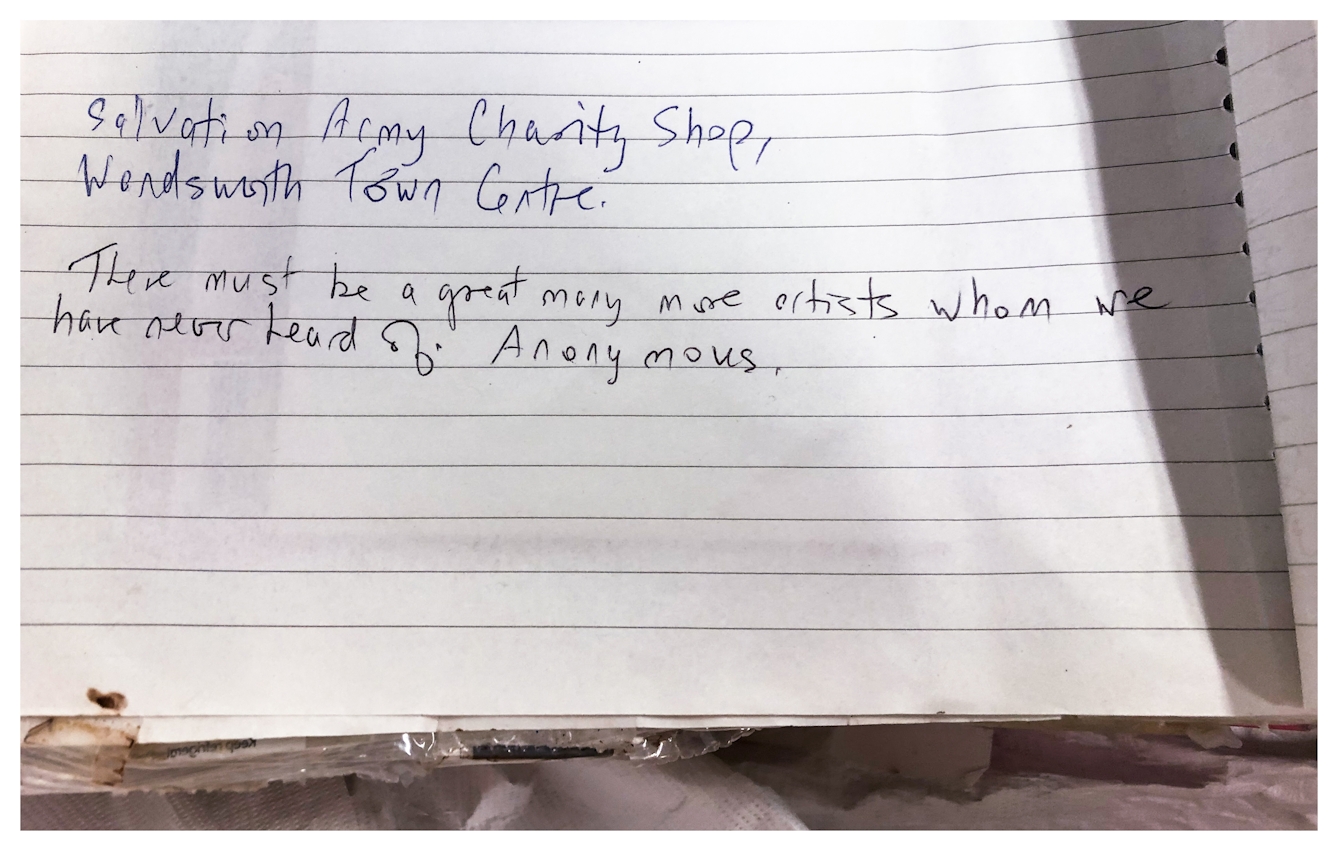 Salvation Army Charity Shop,
Wandsworth Town Centre.
There must be a great many more artists whom we
have never heard of. Anonymous.
Keep refrigerat